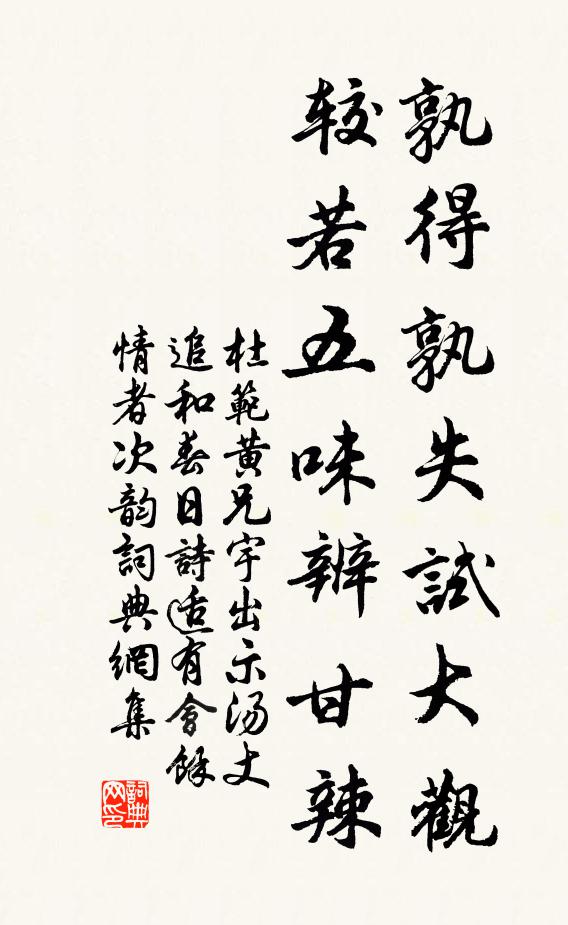 孰得孰失試大觀
较若五味辨甘辣
杜範黄兄宇出示汤丈
追和春日詩适有會馀
情者次韵詞典網集
詞典网印